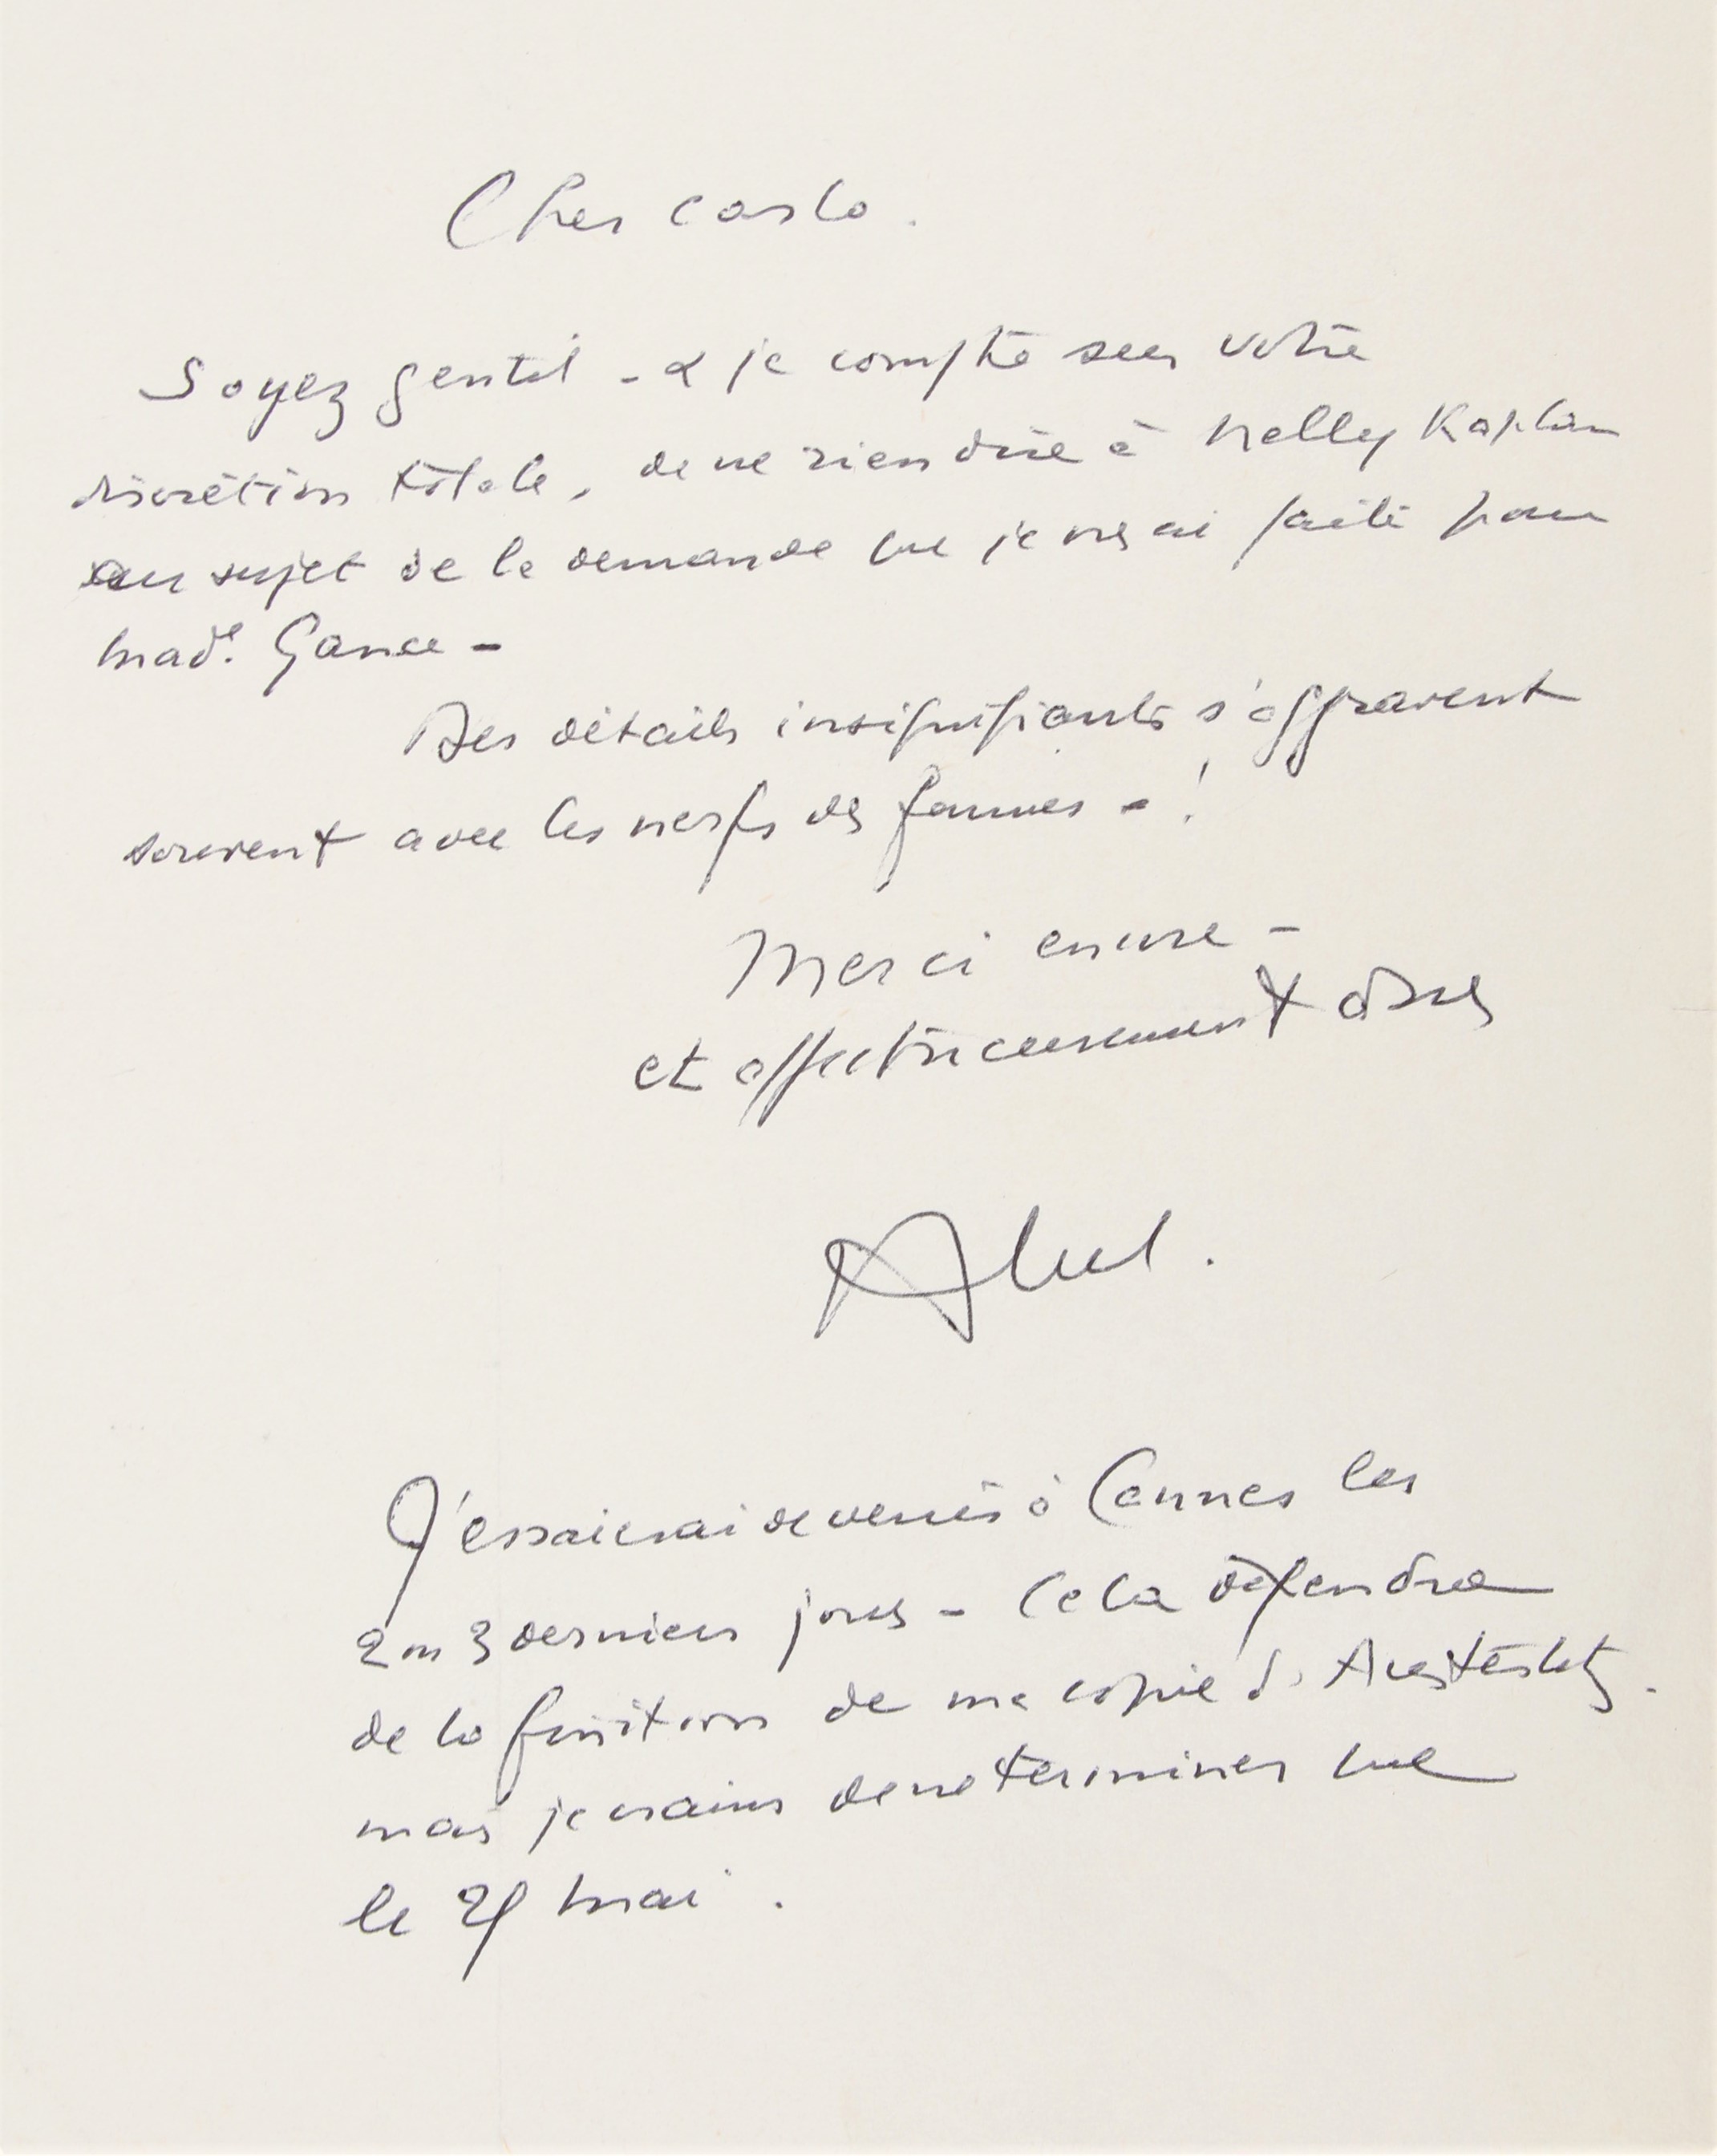 Cher Carlo.
Soyez gentil - & je compte sur votre
discrétion totale, de ne rien dire à Nelly Kaplan
au sujet de la demande que je vs ai faite pour
Made. Gance -
Des détails insignifiants s'aggravent
souvent avec les nerfs des femmes - !
Merci encore -
et affectueusement à vous
Abel.
J'essaierai de venir à Cannes les
2 ou 3 derniers jours - Cela dépendra
de la finition de ma copie d'Austerlitz.
mais je crains de ne terminer que
le mai.